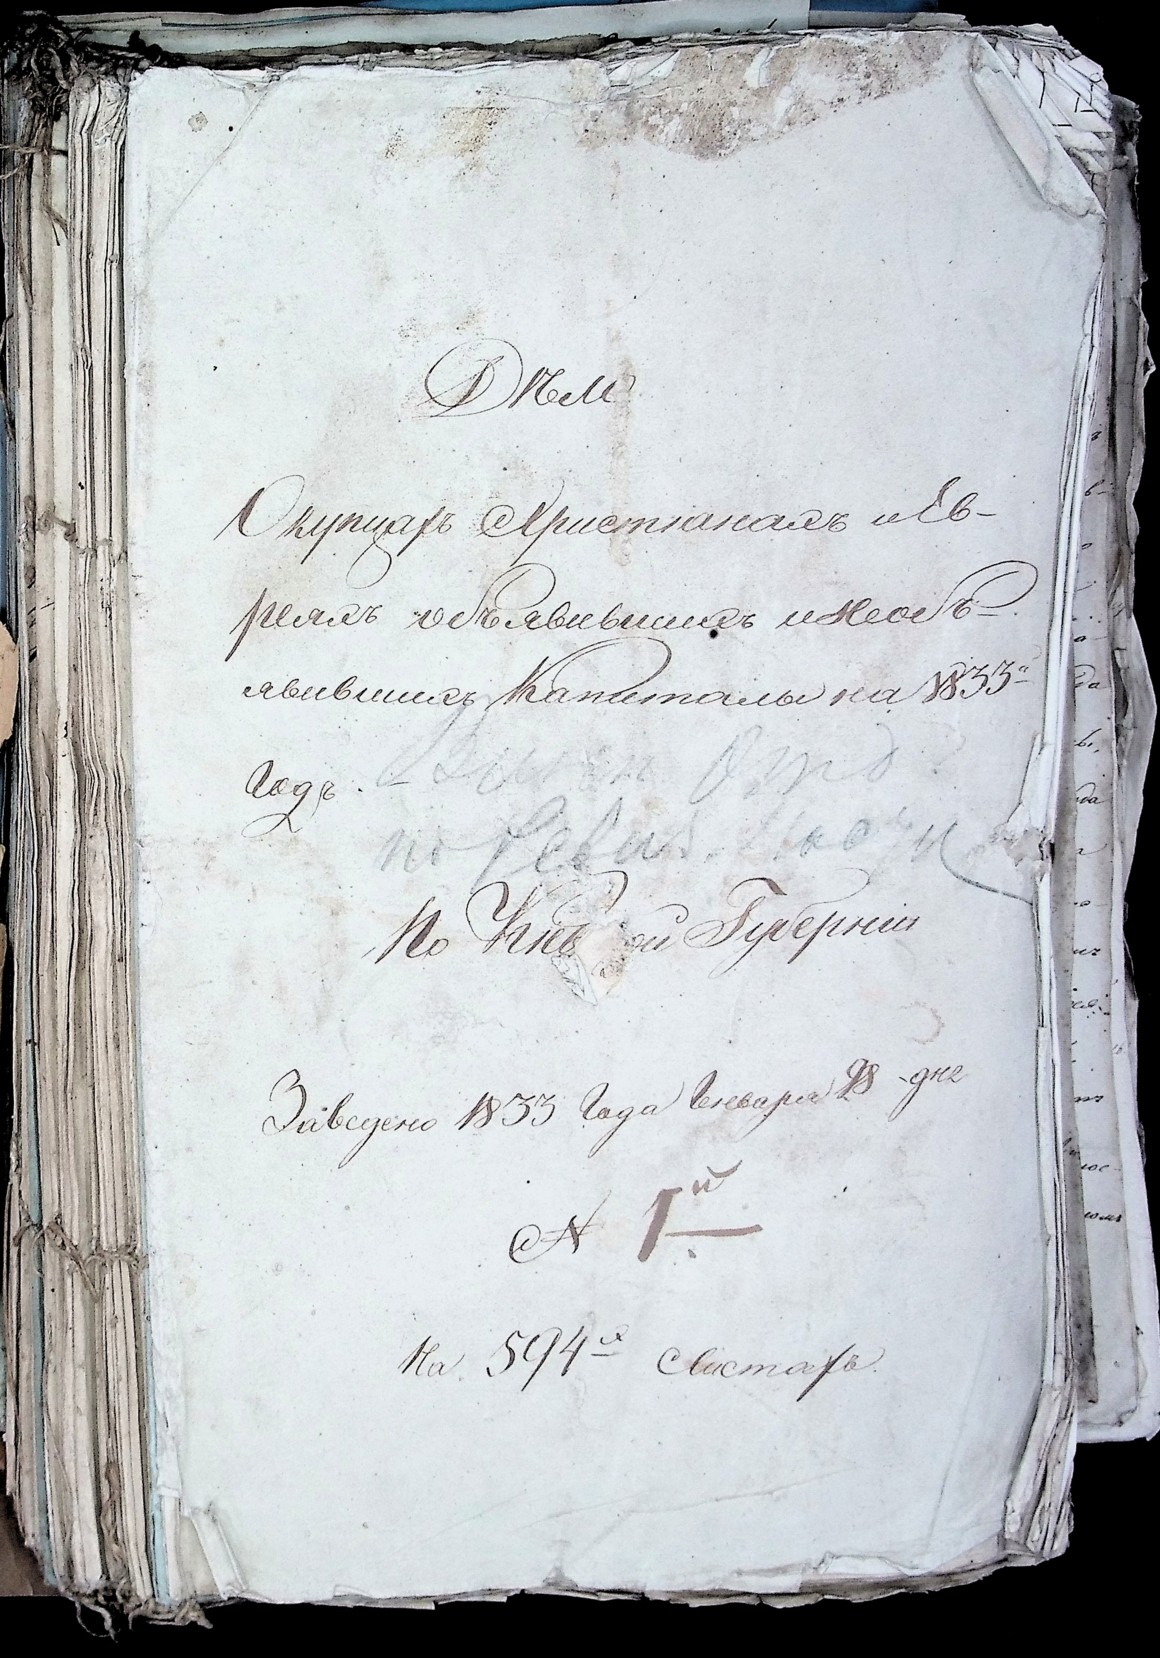 Дѣло
О купцахъ Христианахъ и Ев-
реяхъ объявившихъ и необъ-
явившихъ Капиталы на 1833й
годъ.
по
По ой Губерніи
Заведено 1833 Года Генваря 28 дня
№ 1й
На 594х листахъ.